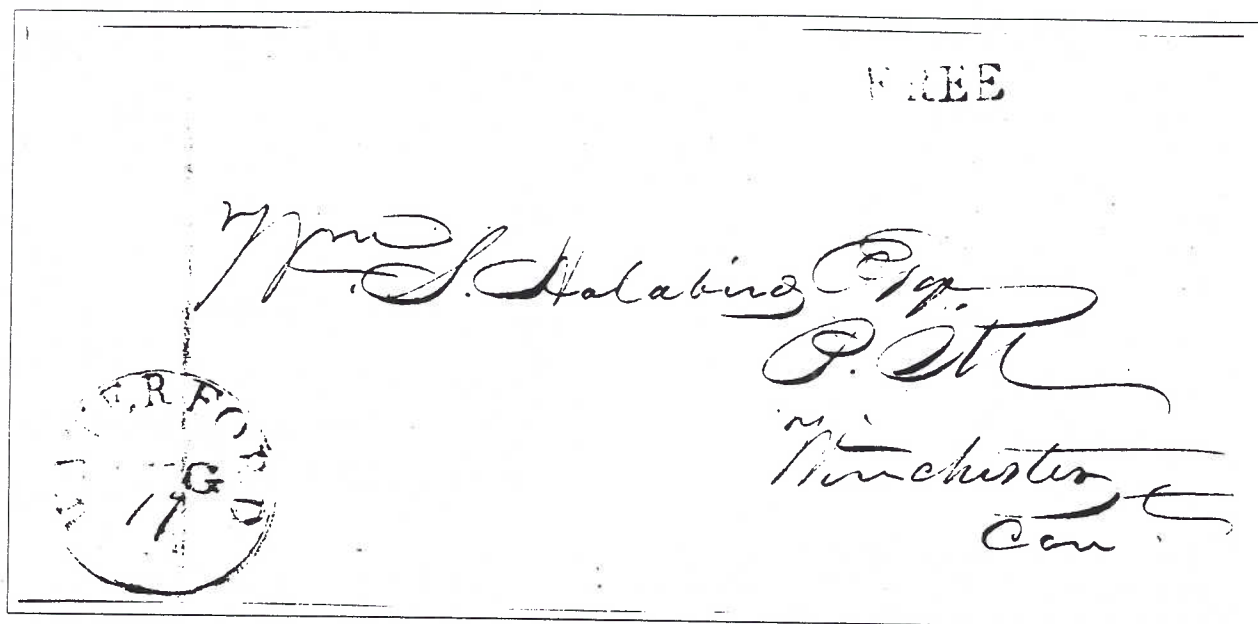 FREE
Wm. S. Holabird Esq.
P. M
Winchester
Con
G
17